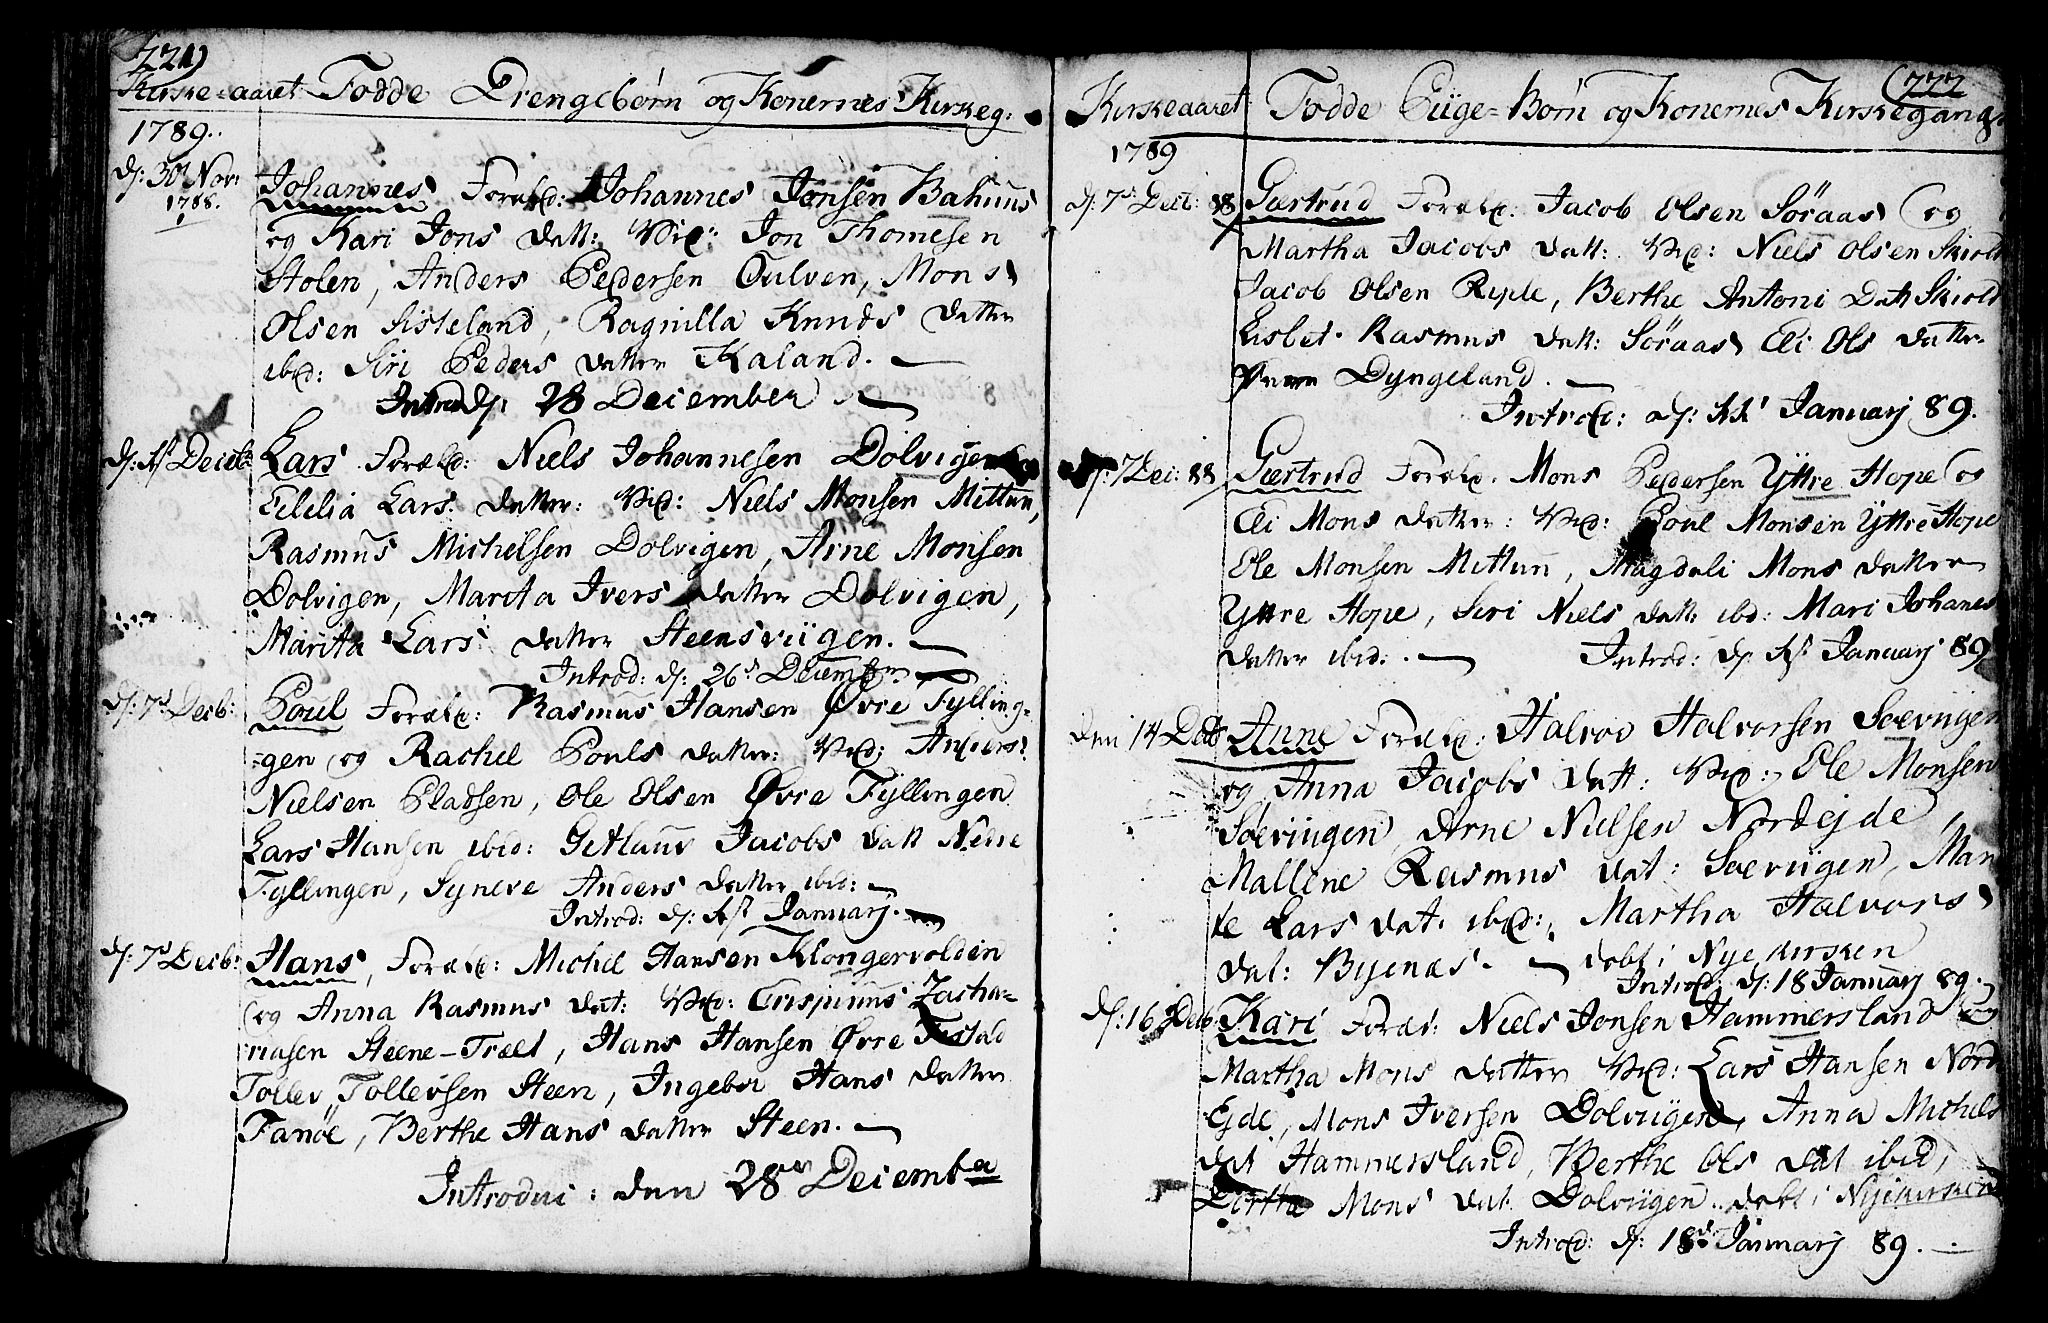 221)
Kirske-aaret Fødde Drengebørn og Konernes Kirkeg:
1789.
d: 30t Nov:
1788.
Johannes Foræld: Johannes Jonsen Bahuus
og Kari Jons datt: Vid: Jon Thomesen
Stolen, Anders Pedersen Tulven, Mons
Olsen Sisteland, Ragnilla Knuds datter
ibd: Siri Peders datter Kaland.
Introd: d: 28 December
Lars Foræld: Niels Johannesen Dolvigen
Cicilia Lars datter: Vid: Niels Monsen Mittun,
Rasmus Michelsen Dolvigen, Arne Monsen
Dolvigen, Marita Ivers datter Dolvigen,
Marita Lars datter Steensviigen.
Introd: d: 26d December
d: 7d Decb:
Poul Foræld: Rasmus Hansen Øvre Tylling-
-gen og Rachel Pouls datter: Vid: Anders
Nielsen Pladsen, Ole Olsen Øvre Tyllingen
Lars Hansen ibid: Jacobs datt Nedre
Tyllingen, Syneve Anders datter ibid:
Introd: d: 1st Januarj.
d: 7d Decb:
Hans, Foræld: Michel Hansen Klongervolden
og Anna Rasmus dat: Vid: Crispinus Zacha-
riasen Steene-Træet, Hans Hansen Øvre
Tollev Tollevsen Steen, Ingebor Hans datter
Fanöe, Berthe Hans datter Steen.
Introduc: den 28de Decemb
(222
Kirskeaaret Fødde Piige-Børn og Konernes Kirskegang
1789
d: 7d Decb: 88
Giertrud Foræld: Jacob Olsen Søraas og
Martha Jacobs datt: Vid: Niels Olsen Skiold
Jacob Olsen Ryple, Berthe Antoni Datt Skiold
Lisbet Rasmus datt: Søraas Eli Ols datter
Dyngeland.
Introd: d: Januarj 89.
d: 7 Dec: 88
Giertrud Foræld. Mons Pedersen Yttre Hope og
Eli Mons datter: Vid: Poul Monsen Yttre Hope
Ole Monsen Mittun, Magdeli Mons datter
Yttre Hope, Seri Niels datt ibd: Mari Johanes
datter ibid:. Introd: d: Januarj 89
den 14 Decb
Anne Foræld: Halvor Halvorsen Soeviigen
og Anna Jacobs datt: Vid: Ole Monsen
Soeviigen, Arne Nielsen Nordejde,
Mallene Rasmus dat: Soeviigen, Mari-
te Lars dat: ibid:, Martha Halvors
dat: Byenæs. døbt i Nyekirsken
Introd: d: 18 Januarj 89.
d: 16 Decb
Kari Foræl: Niels Jonsen Hammersland og
Martha Mons datter Vid: Lars Hansen Nord
Ejde, Mons Iversen Dolviigen, Anna Michels
dat Hammersland, Berthe Ols dat ibid,
Dorthe Mons dat Dolviigen. døbt i Nyekirsken
Introd: d: 18d Januarj 89.